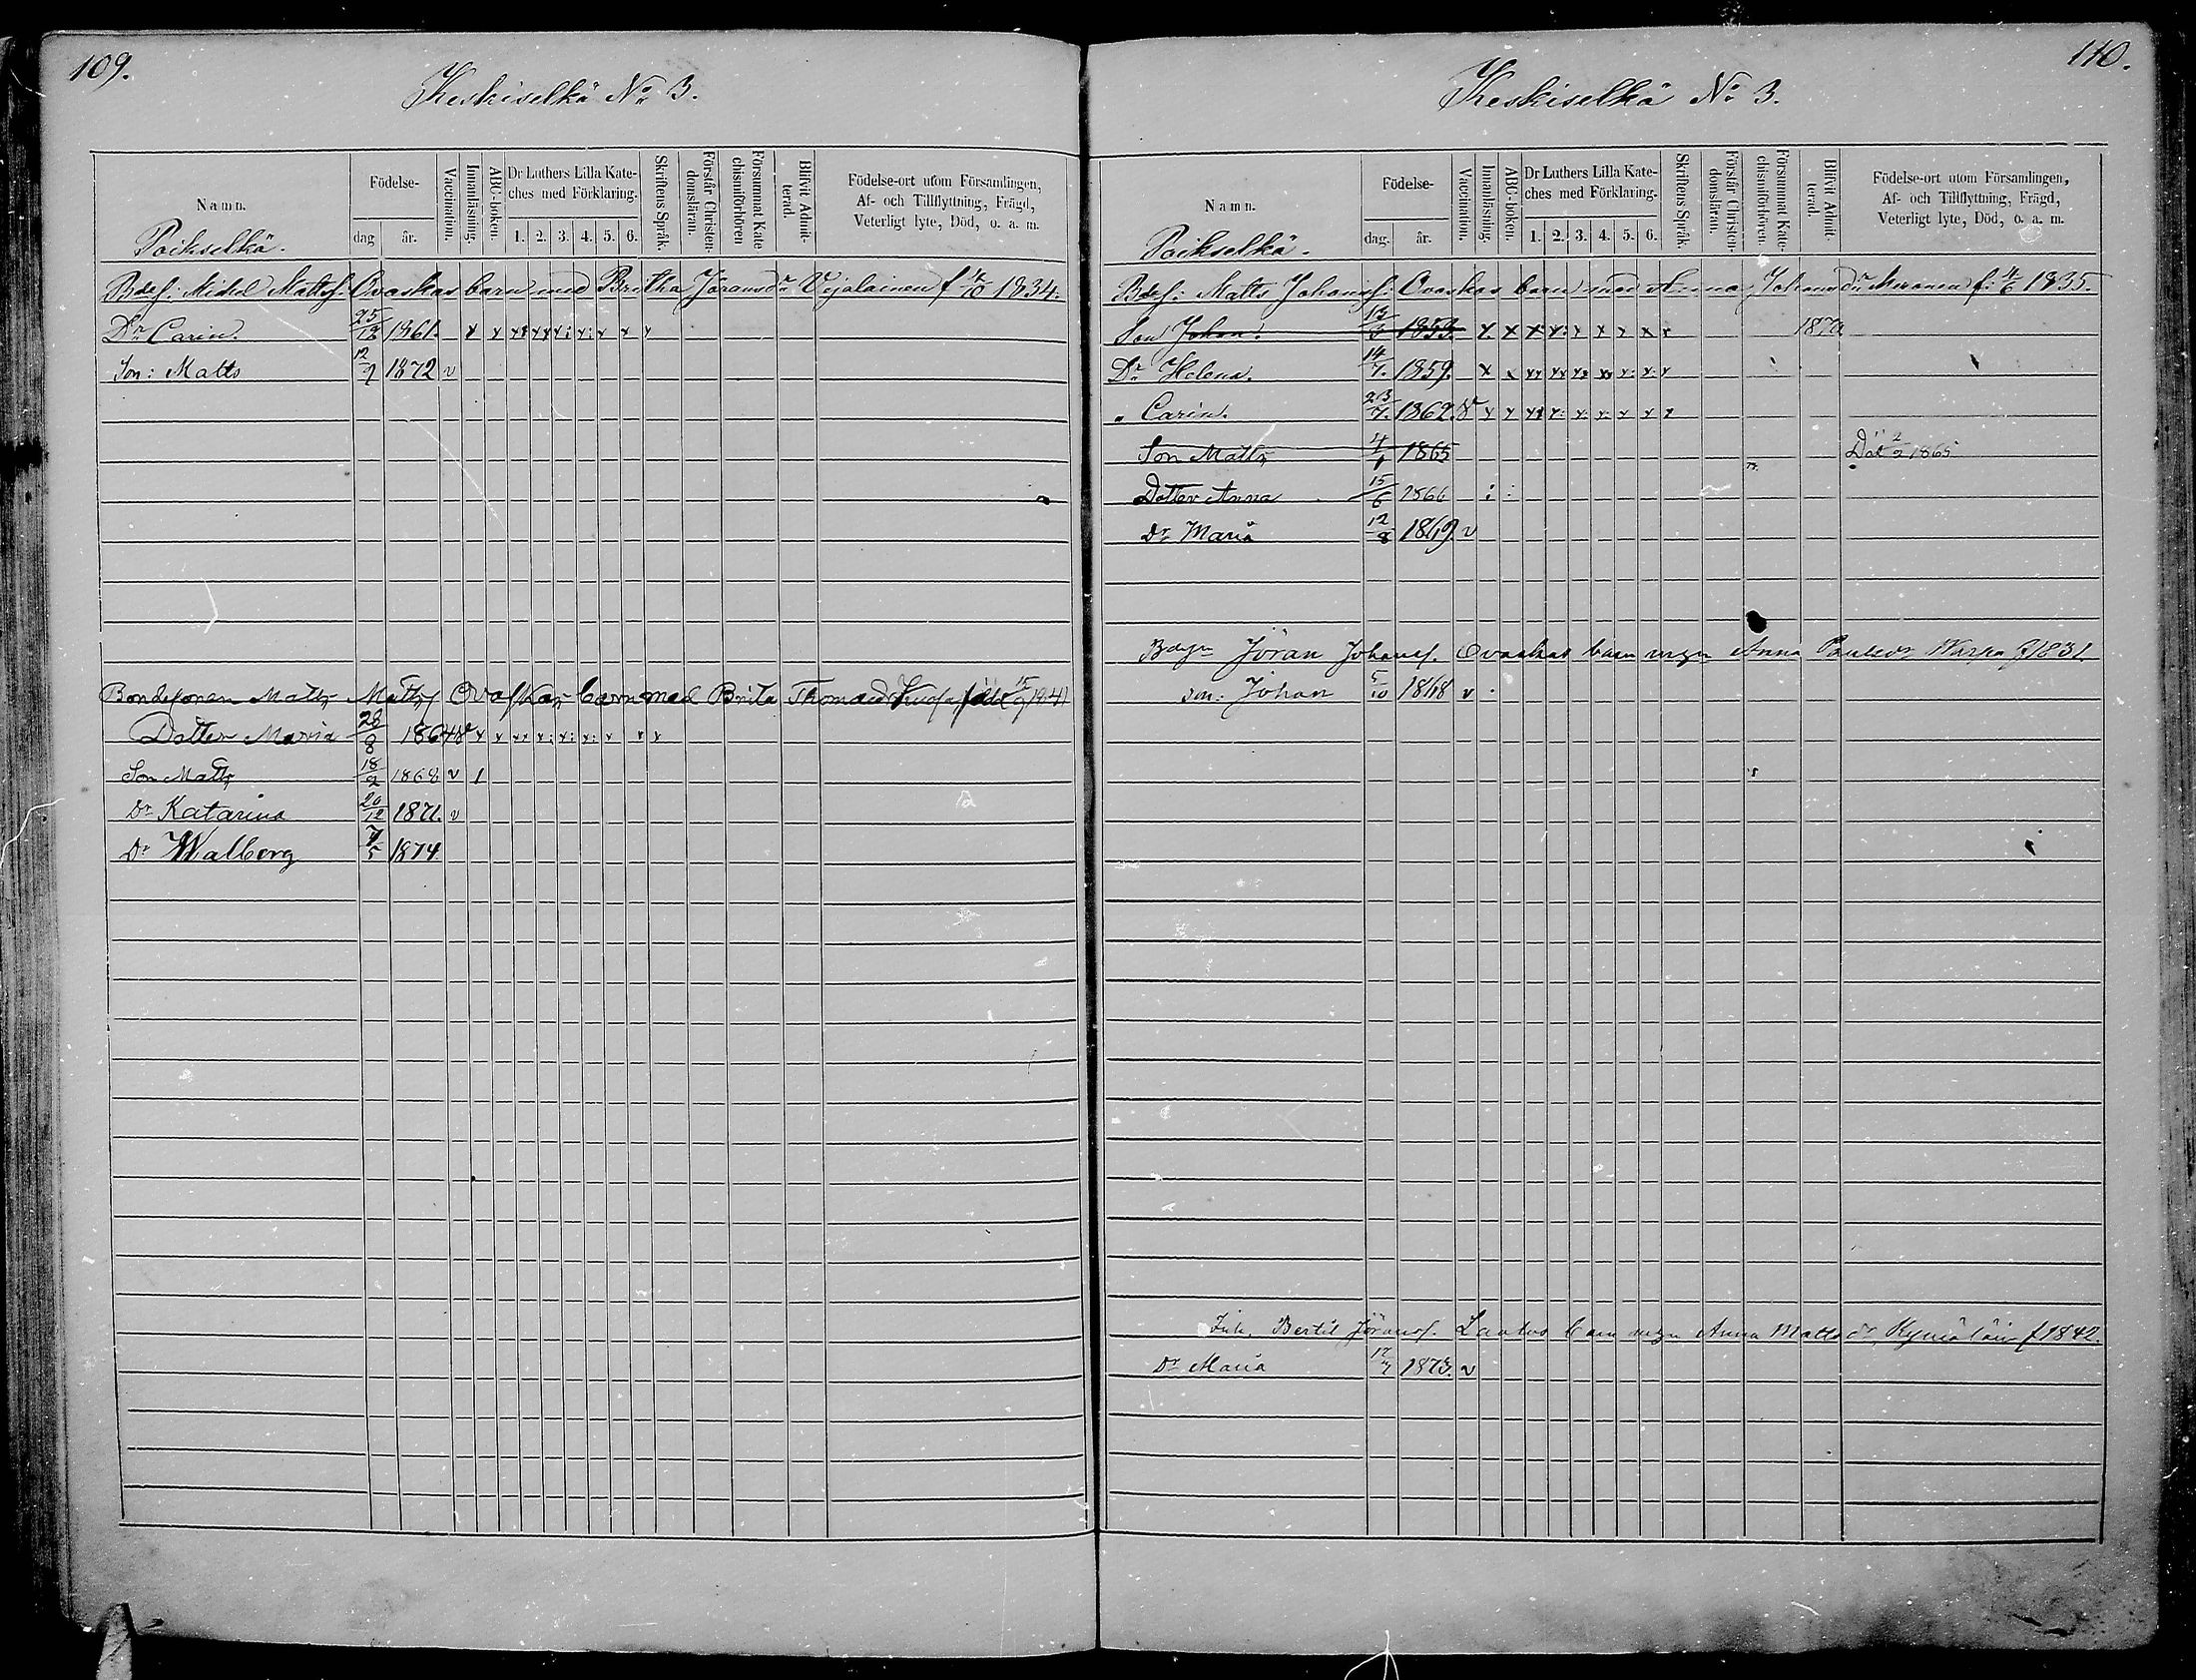 109.
Keskiselkä No 3.
Namn.
Födelse-
dag
år.
Vaccination.
Innanläsning.
ABC-boken.
Dr Luthers Lilla Kate-
ches med Förklaring.
1. 2. 3. 4. 5. 6.
Skriftens Språk.
Förstår Christen-
domsläran.
Försummat Kate-
chismiförhören
Blifvit Admit-
terad.
Födelse-ort utom Församlingen,
Af- och Tillflyttning, Frägd,
Veterligt lyte, Död, o. a. m.
Poikselkä.
Bdes: Michel Mattss: Ovaskas barn med Britha Jöransdr f 1834.
Dr Carin. 25/12 1861.
Son: Matts 12/9 1872 v
Bondesonen Matts Mattss Ovaskas barn med Brita Thomasd född 15/9 1841
Dotter Maria 28/8 1864 v
Son Matts 18/2 1868 v 1
Dr Katarina 20/12 1871. v
Dr Walberg 7/5 1874
110.
Keskiselkä No 3.
Namn.
Födelse-
dag.
år.
Vaccination.
Innanläsning.
ABC-boken.
Dr Luthers Lilla Kate-
ches med Förklaring.
1. 2. 3. 4. 5. 6.
Skriftens Språk.
Förstår Christen-
domsläran.
Försummat Kate-
chismiförhören.
Blifvit Admit-
terad.
Födelse-ort utom Församlingen,
Af- och Tillflyttning, Frägd,
Veterligt lyte, Död, o. a. m.
Poikselkä.
Bdes: Matts Johanss: Ovaskas barn med Anna Johansdr Meronen f: 4/6 1835.
Son Johan. 13/3 1853. 1870
Dr Helena. 14/7. 1859.
" Carin. 23/7. 1862. v
Son Matts 4/1 1865 Död 2/2 1865
Dotter Anna 15/6 1866
Dr Maria 12/8 1869. v
Jöran Johanss. Ovaskas barn Anna Paulsdr f 1831.
son: Johan 5/10 1868 v
Inh. Bertil Jöranss. Laatus barn Anna Matts dr f 1842.
Dr Maria 17/7 1873. v